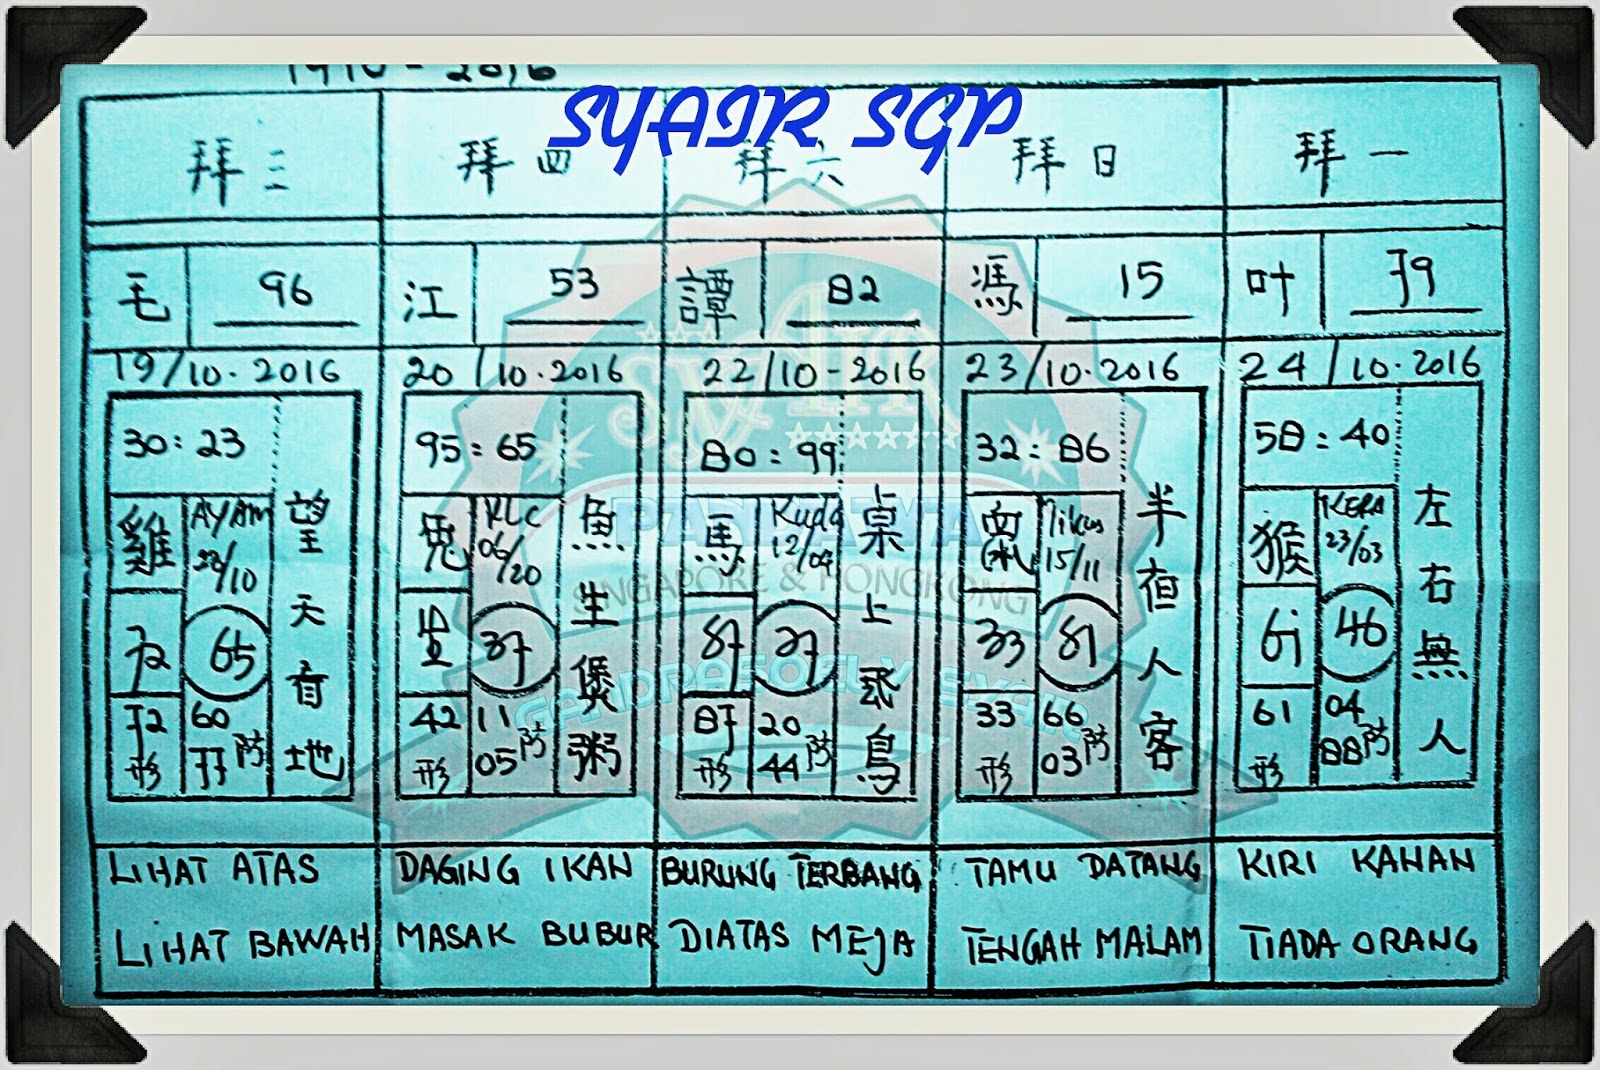 SYAIR SGP
拜三
拜四
拜六
拜日
拜一
毛 96
江 53
譚 82
馮 15
叶 79
19/10.2016
20/10.2016
22/10-2016
23/10.2016
24/10.2016
30:23
雞
AYAM
/10
72
65
72
形
60
77
防
望天有地
95:65
兎
06/20
37
42
形
11
05
防
魚生煲粥
80:99
馬
Kuda
12/09
87
37
87
形
20
44
防
桌上飛鳥
32:86
鼠
Tikus
15/11
33
81
33
形
66
03
防
半夜人客
58:40
猴
KERA
23/03
61
46
61
形
04
88
防
左右無人
PANJAWA
SINGAPORE & HONGKONG
LIHAT ATAS
LIHAT BAWAH
DAGING IKAN
MASAK BUBUR
BURUNG TERBANG
DIATAS MEJA
TAMU DATANG
TENGAH MALAM
KIRI KANAN
TIADA ORANG